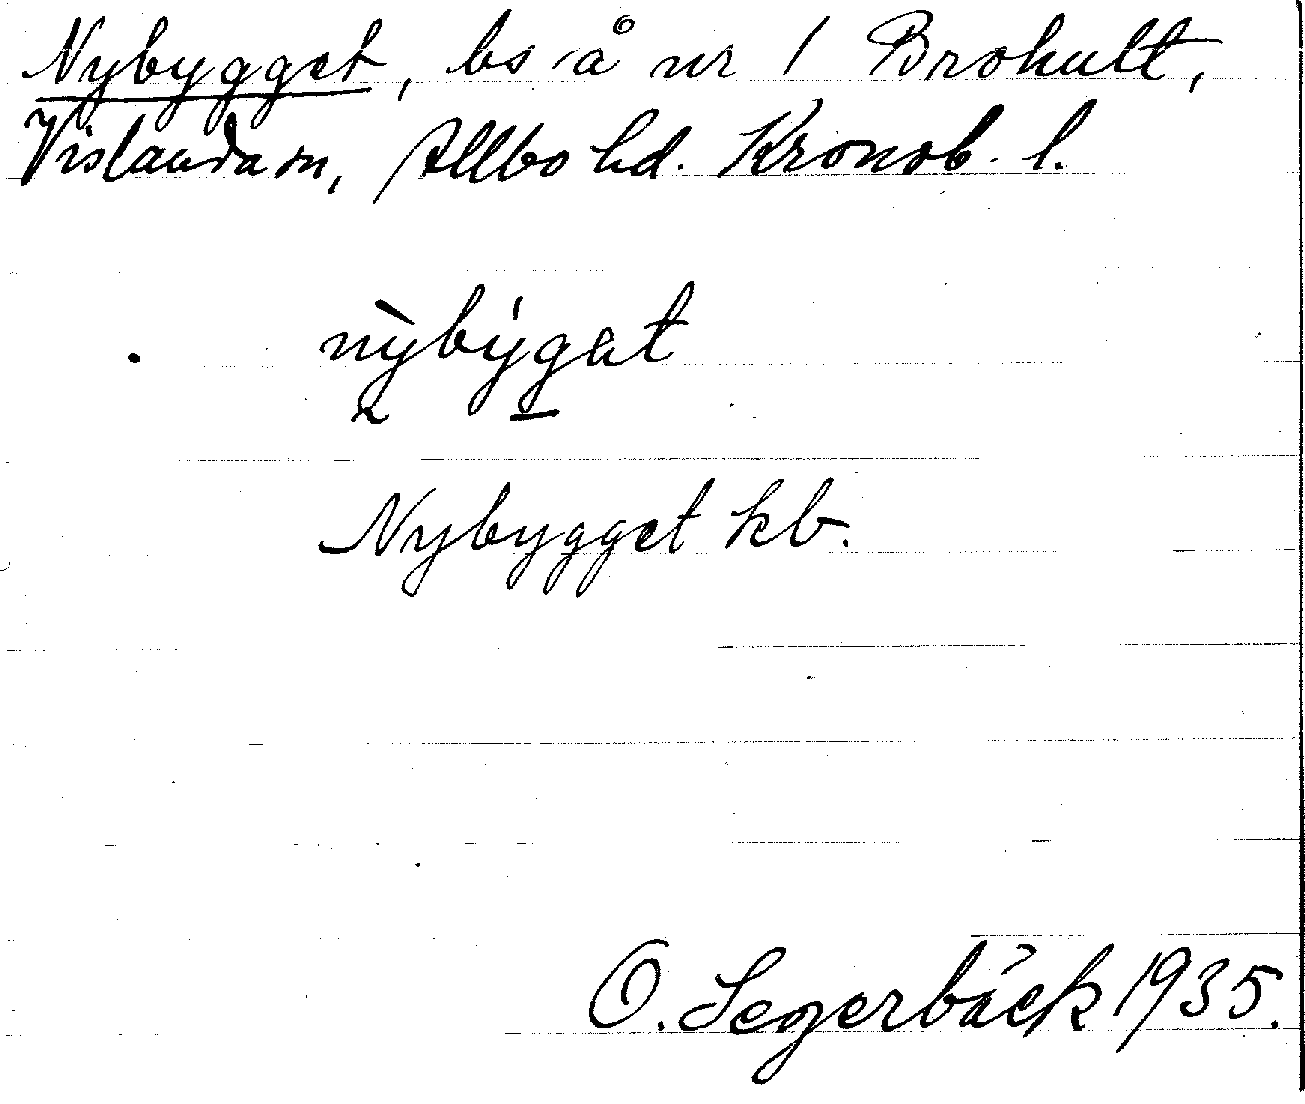 Nybygget, bs å nr 1 Brohult,
Vislanda sn, Allbo hd. Kronob. l.
nỳbýgat
Nybygget kb.
O. Segerbäck 1935.